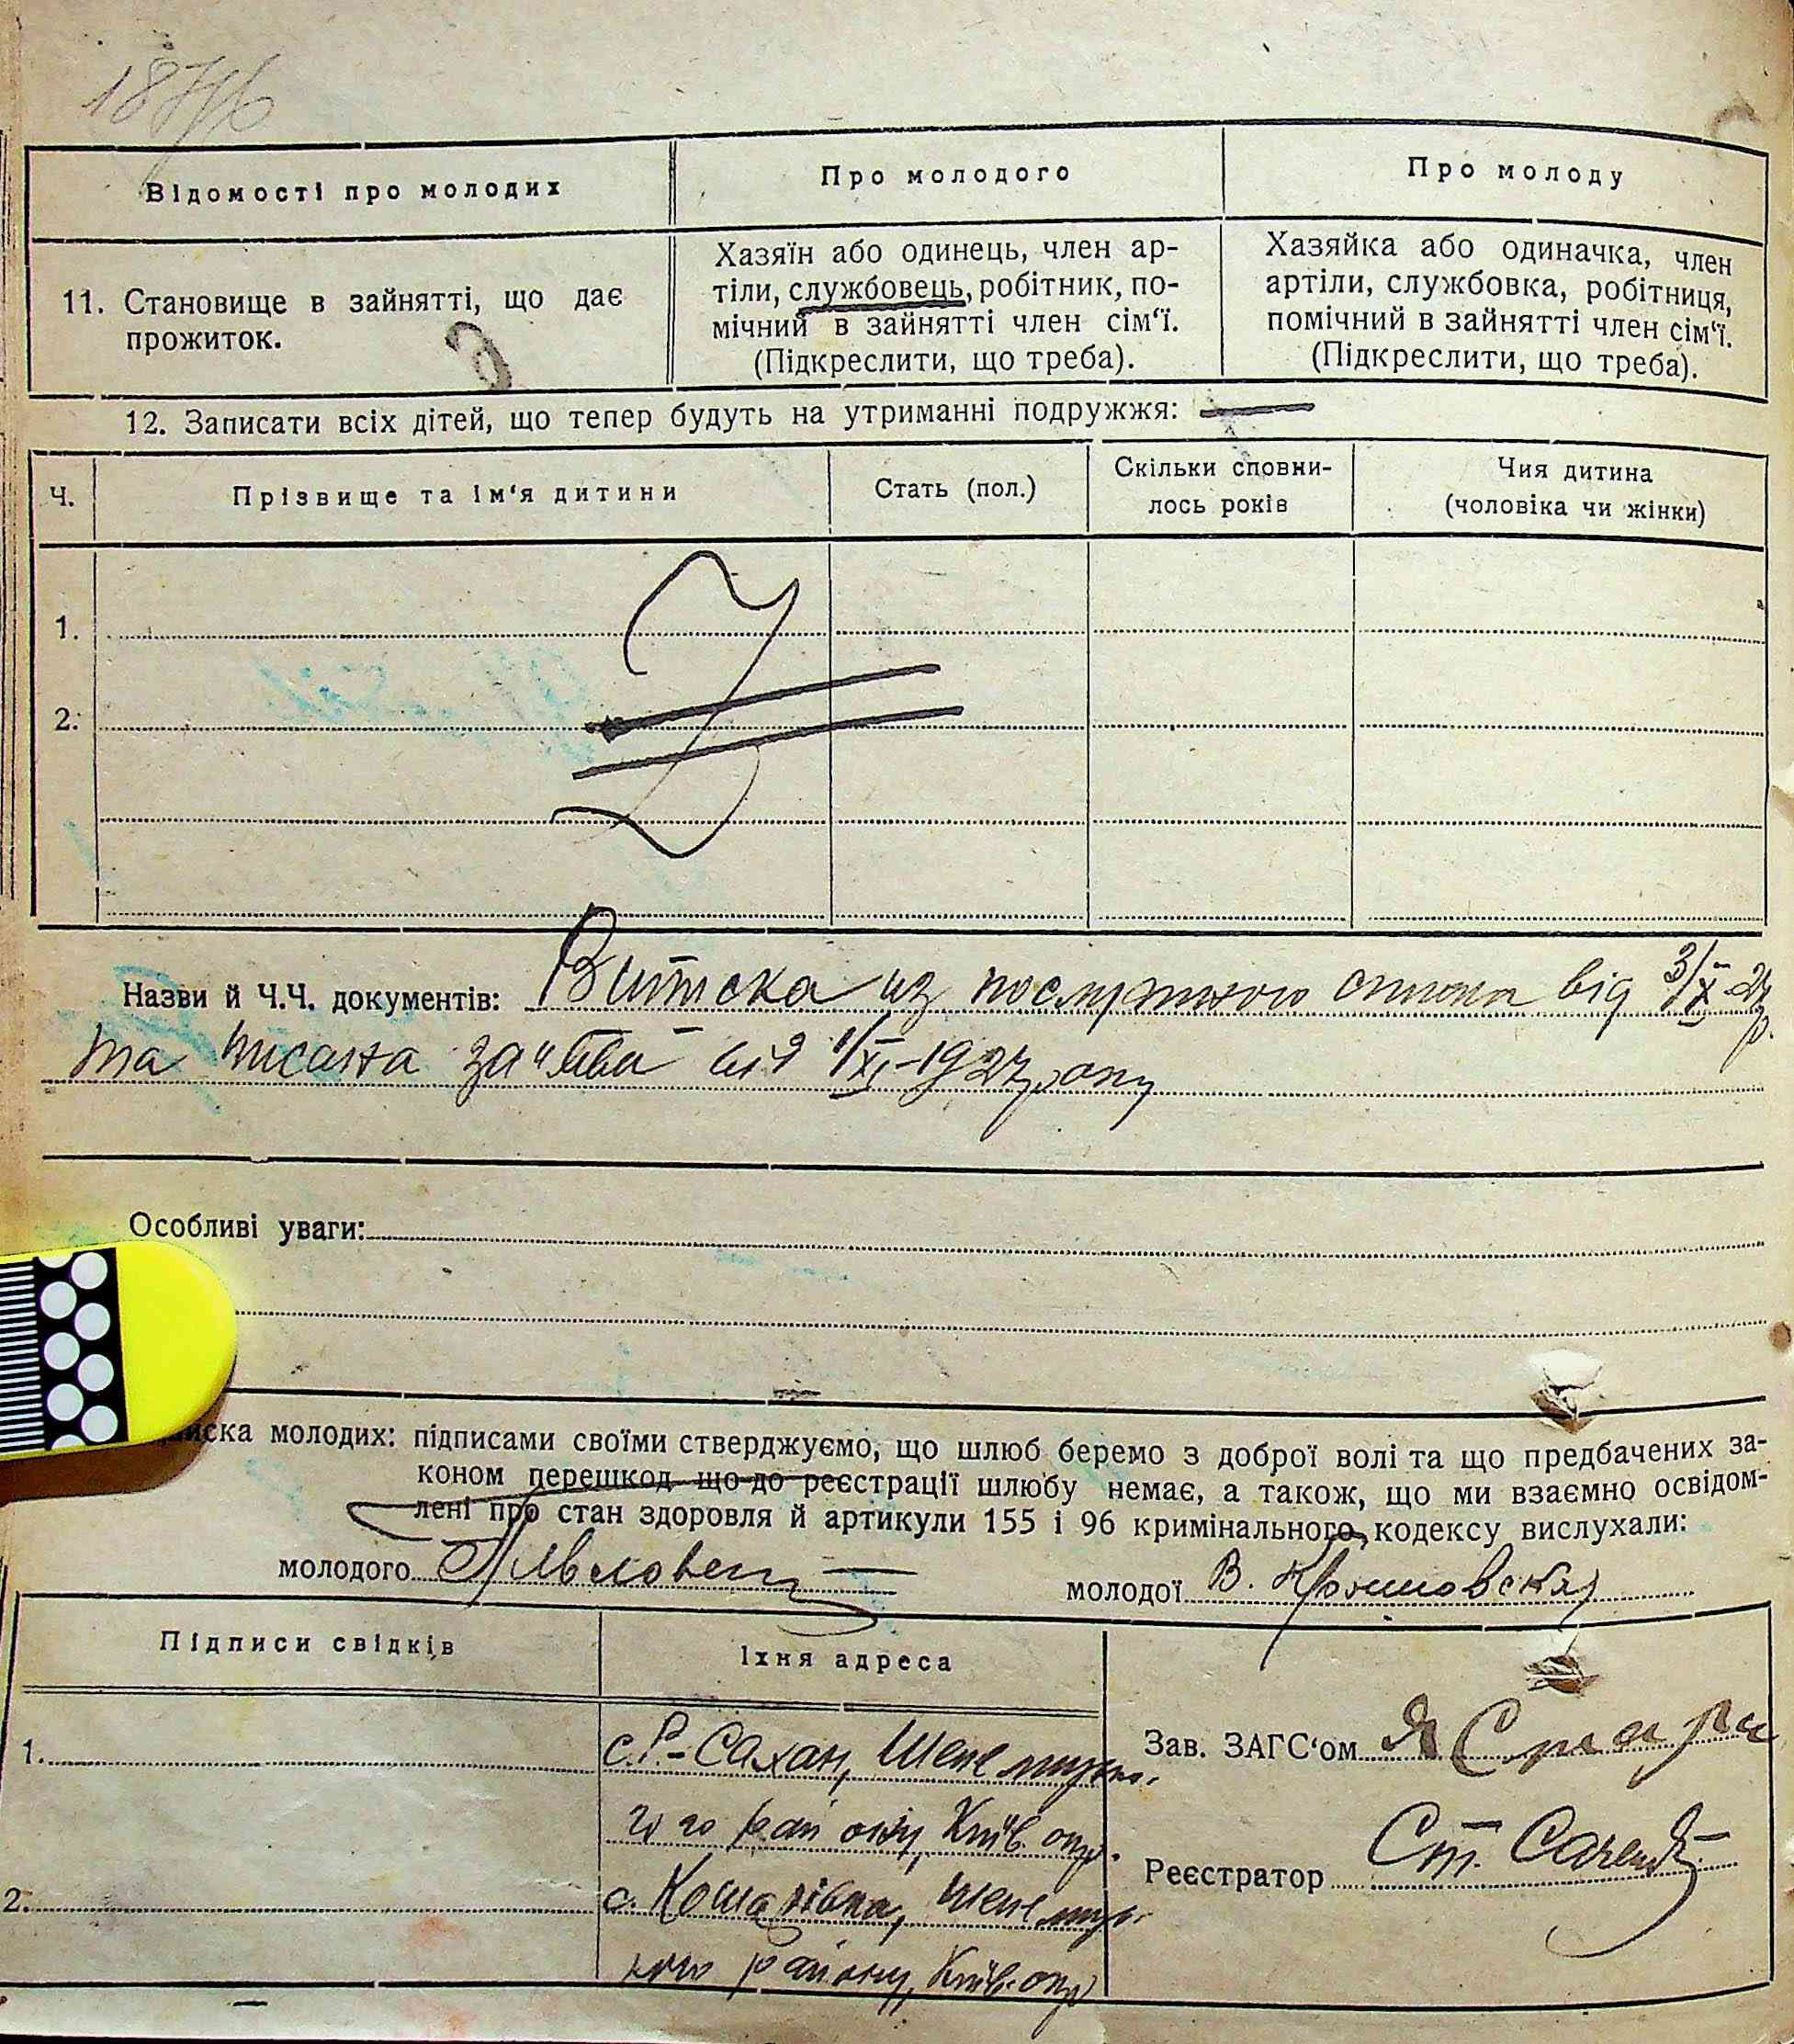 Відомості про молодих
Про молодого
Про молоду
11. Становище в зайнятті, що дає
прожиток.
Хазяїн або одинець, член ар-
тіли, службовець, робітник, по-
мічний в зайнятті член сім'ї.
(Підкреслити, що треба).
Хазяйка або одиначка, член
артіли, службовка, робітниця,
помічний в зайнятті член сім'ї.
(Підкреслити, що треба).
12. Записати всіх дітей, що тепер будуть на утриманні подружжя:
Ч.
Прізвище та ім'я дитини
Стать (пол.)
Скільки сповни-
лось років
Чия дитина
(чоловіка чи жінки)
1.
2.
Назви й Ч.Ч. документів: Витиска из послужного списка від 3/X-27 р.
та писана заява від 1/XI-1927 року
Особливі уваги:
иска молодих: підписами своїми стверджуємо, що шлюб беремо з доброї волі та що предбачених за-
коном перешкод що-до реєстрації шлюбу немає, а також, що ми взаємно освідом-
лені про стан здоровля й артикули 155 і 96 кримінального кодексу вислухали:
молодого
молодої В.
Підписи свідків
Їхня адреса
1.
с. Р-Сахан, Шепелич
го району, Київ. окр.
2.
с. Кошарівка, Шепелич
кого району, Київ. окр
Зав. ЗАГС'ом
Реєстратор Ст.